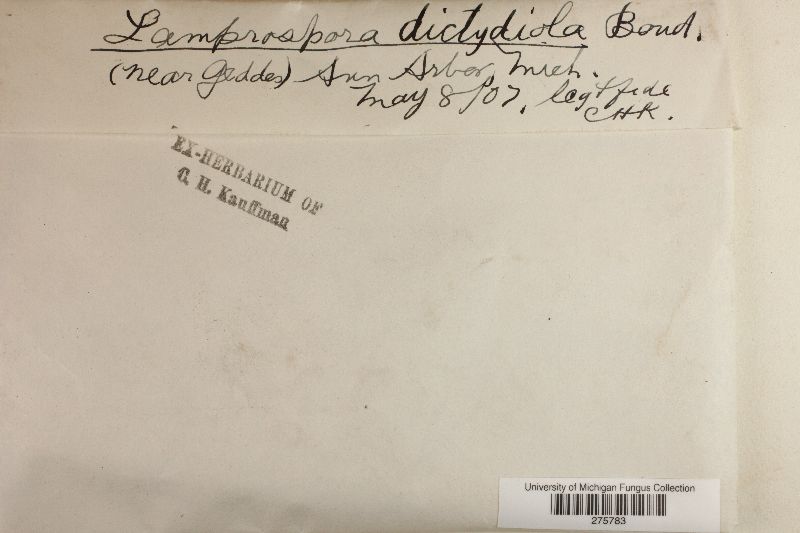 Lamprospora dictydiola Boud.
(near Geddes) Ann Arbor, Mich.
May 8/07, leg + fide
CHK.
EX-HERBARIUM OF
C. H. Kauffman
University of Michigan Fungus Collection
275783